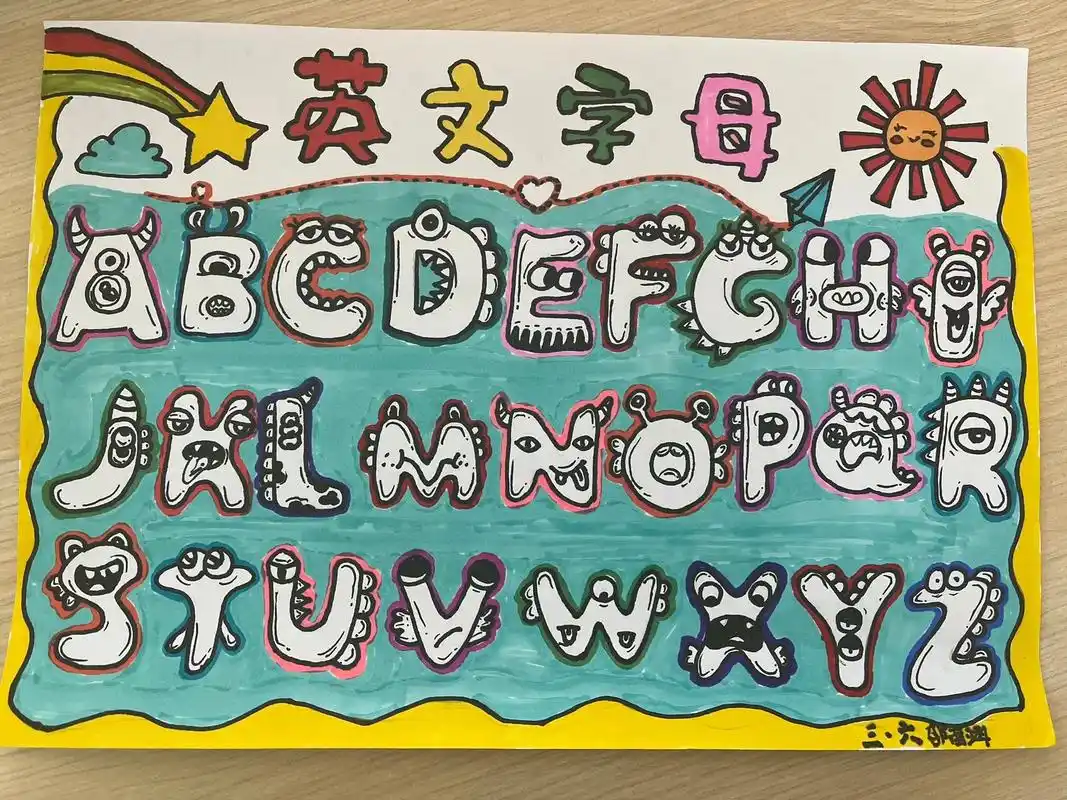 英文字母
ABCDEFGHI
JKLMNOPQR
STUVWXYZ
三·六